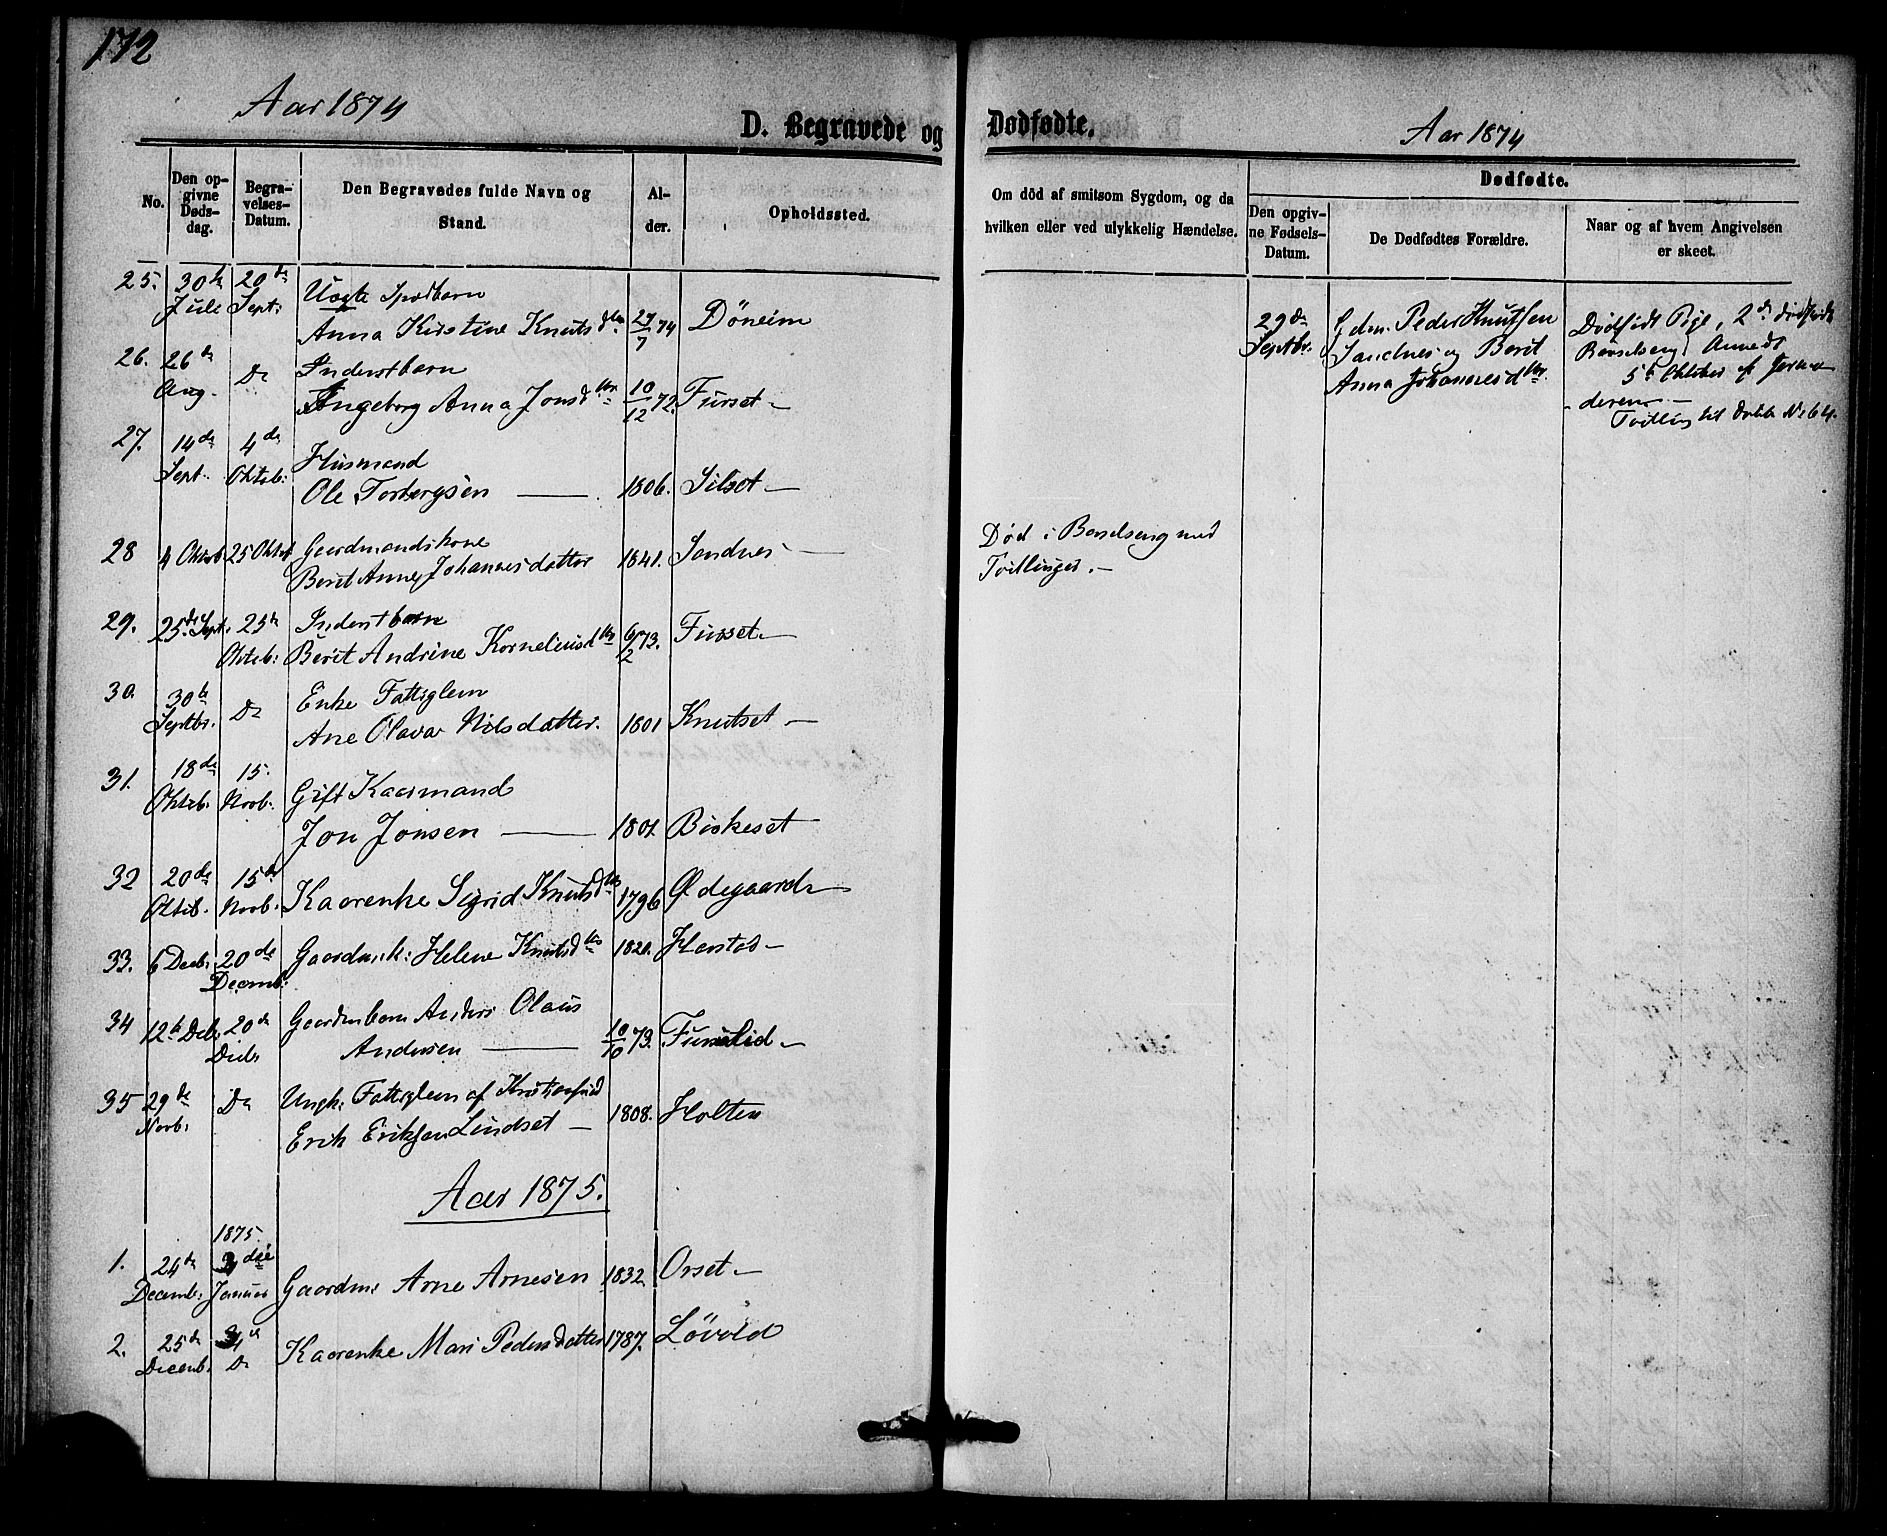 172
Aar 1874
D. Begravede og
Dødfødte.
Aar 1874
No.
Den op-
givne
Døds-
dag.
Begra-
velses-
Datum.
Den Begravedes fulde Navn og
Stand.
Al-
der.
Opholdssted.
Om död af smitsom Sygdom, og da
hvilken eller ved ulykkelig Hændelse.
Dødfødte.
Den opgiv-
ne Fødsels-
Datum.
De Dødfødtes Forældre.
Naar og af hvem Angivelsen
er skeet.
25. 30te Juli 20de Sept: Uægte Spædbarn
Anna Kirstine Knutsdtr 27/7 74 Döneim
26. 26de Aug. Do Inderstbarn
Ingeborg Anna Jonsdtr 10/12 72. Furset
27. 14de Sept. 4de Oktob: Husmand
Ole Torbergsen 1806. Silset
28 4 Oktob 25 Oktob Gaardmandskone
Beret Anne Johannesdatter 1841. Sandnes
Død i Barselseng med
Tvillinger.
29. 25de Sept. 25de Oktob: Inderstbarn
Beret Andrine Korneliusdtr 6/2 73. Furset
30. 30te Septbr. Do Enke Fattiglem
Ane Olava Nilsdatter. 1801 Knutset
31. 18de Oktob. 15. Novb. Gift Kaarmand
Jon Jonsen 1801. Biskeset
32 20de Oktb. 15de Novb. Kaarenke Sigrid Knutsdtr 1796 Ødegaard
33. 6 Decb. 20de Decemb: Gaardmk: Helene Knutsdtr 1820.
34 12te Decb. 20de Decb. Gaardmbarn Anders Olaus
Andersen 10/10 73. Furset
35 29de Novb. Do Ungk: Fattiglem af Kristiansund
Erik Eriksen Lindset 1808. Holten
29de
Septbr.
Gdm. Peder Knutsen
Sandnes og Beret
Anna Johannesdtr.
Dødfødt Pige, 2de dødfødte
Barselseng! Anmeldt
5te Oktober af Jormo-
deren
Tvilling til Døbte No 64.
Aar 1875.
1875.
1. 24de Decemb: 3die Januar Gaardm: Arne Arnesen 1832 Orset
2. 25de Decemb. Do Kaarenke Mari Pedersdatter 1787. Løvold